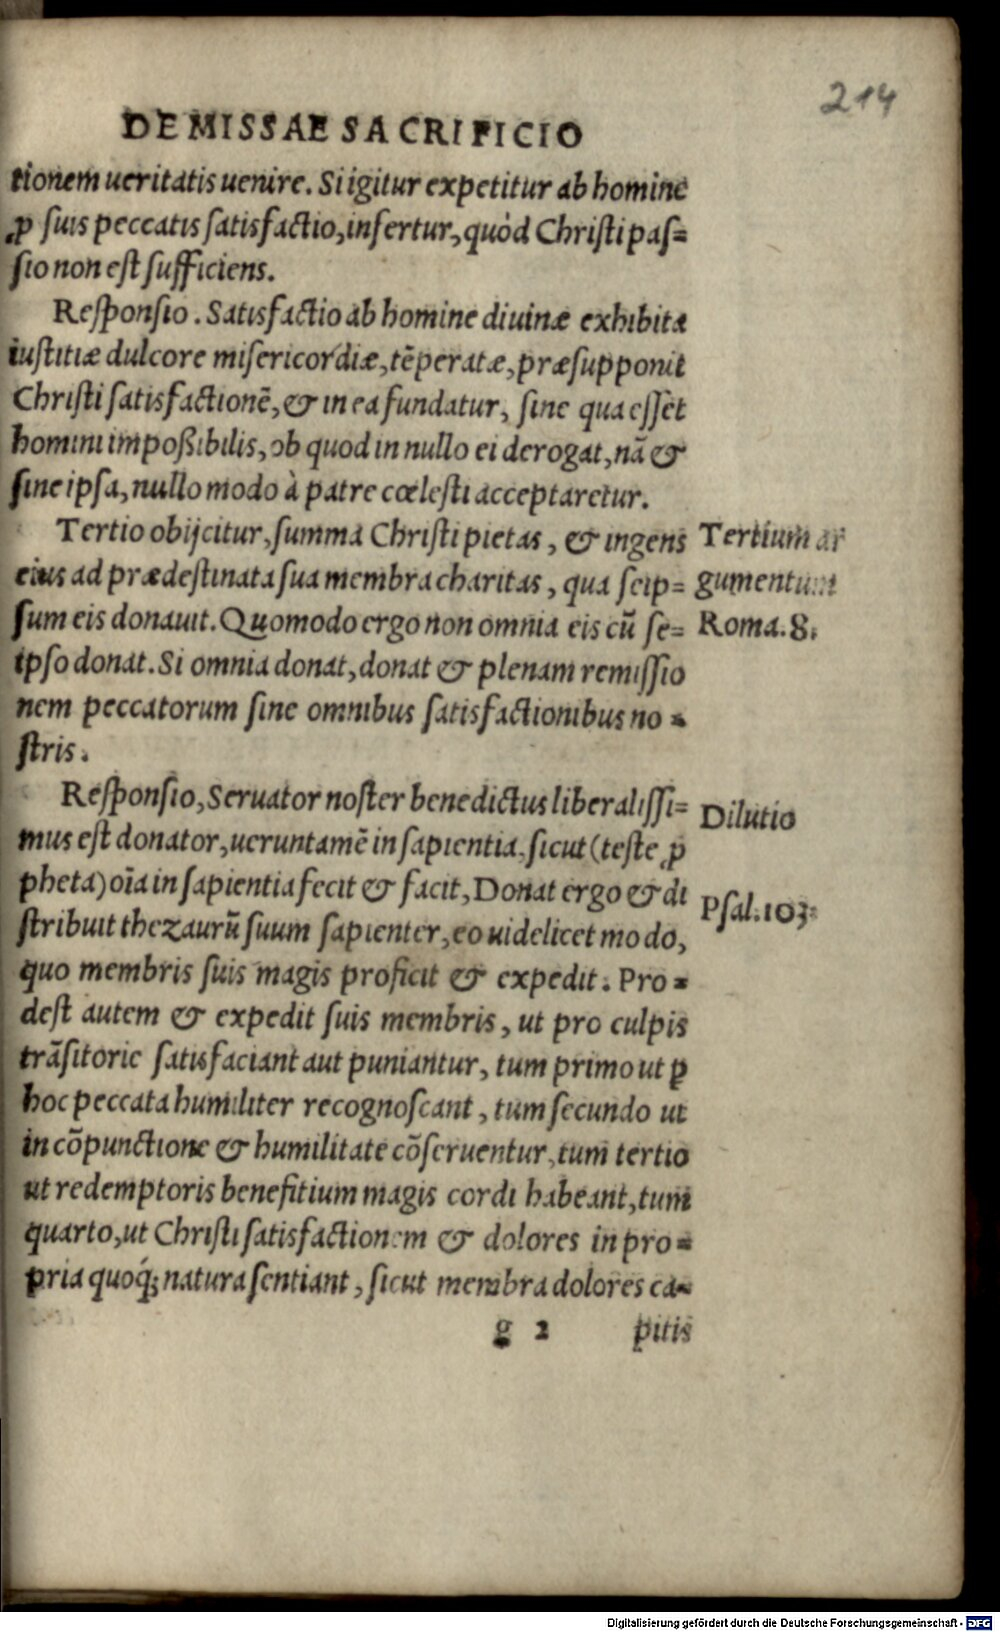 214
DE MISSAE SACRIFICIO
tionem ueritatis uenire. Si igitur expetitur ab homine
ꝓ suis peccatis satisfactio, insertur, quòd Christi pas=
sio non est sufficiens.
Responsio. Satisfactio ab homine diuinæ exhibita
iustitiæ dulcore misericordiæ, tẽperatæ, præsupponit
Christi satisfactionẽ, & in ea fundatur, sine qua esset
homini impoßibilis, ob quod in nullo ei derogat, nã &
sine ipsa, nullo modo à patre cœlesti acceptaretur.
Tertio obijcitur, summa Christi pietas, & ingens
eius ad prædestinata sua membra charitas, qua seip=
sum eis donauit. Quomodo ergo non omnia eis cũ se=
ipso donat. Si omnia donat, donat & plenam remissio
nem peccatorum sine omnibus satisfactionibus no=
stris.
Tertium ar
gumentum
Roma. 8.
Responsio, Seruator noster benedictus liberalissi=
mus est donator, ueruntamẽ in sapientia, sicut (teste ꝓ
pheta) oĩa in sapientia fecit & facit, Donat ergo & di
stribuit thezaurũ suum sapienter, eo uidelicet modo,
quo membris suis magis proficit & expedit. Pro=
dest autem & expedit suis membris, ut pro culpis
trãsitorie satisfaciant aut puniantur, tum primo ut ꝑ
hoc peccata humiliter recognoscant, tum secundo ut
in cõpunctione & humilitate cõseruentur, tum tertio
ut redemptoris benefitium magis cordi habeant, tum
quarto, ut Christi satisfactionem & dolores in pro=
pria quoq́; natura sentiant, sicut membra dolores ca=
Dilutio
Psal. 103.
g 2 pitis
Digitalisierung gefördert durch die Deutsche Forschungsgemeinschaft - DFG